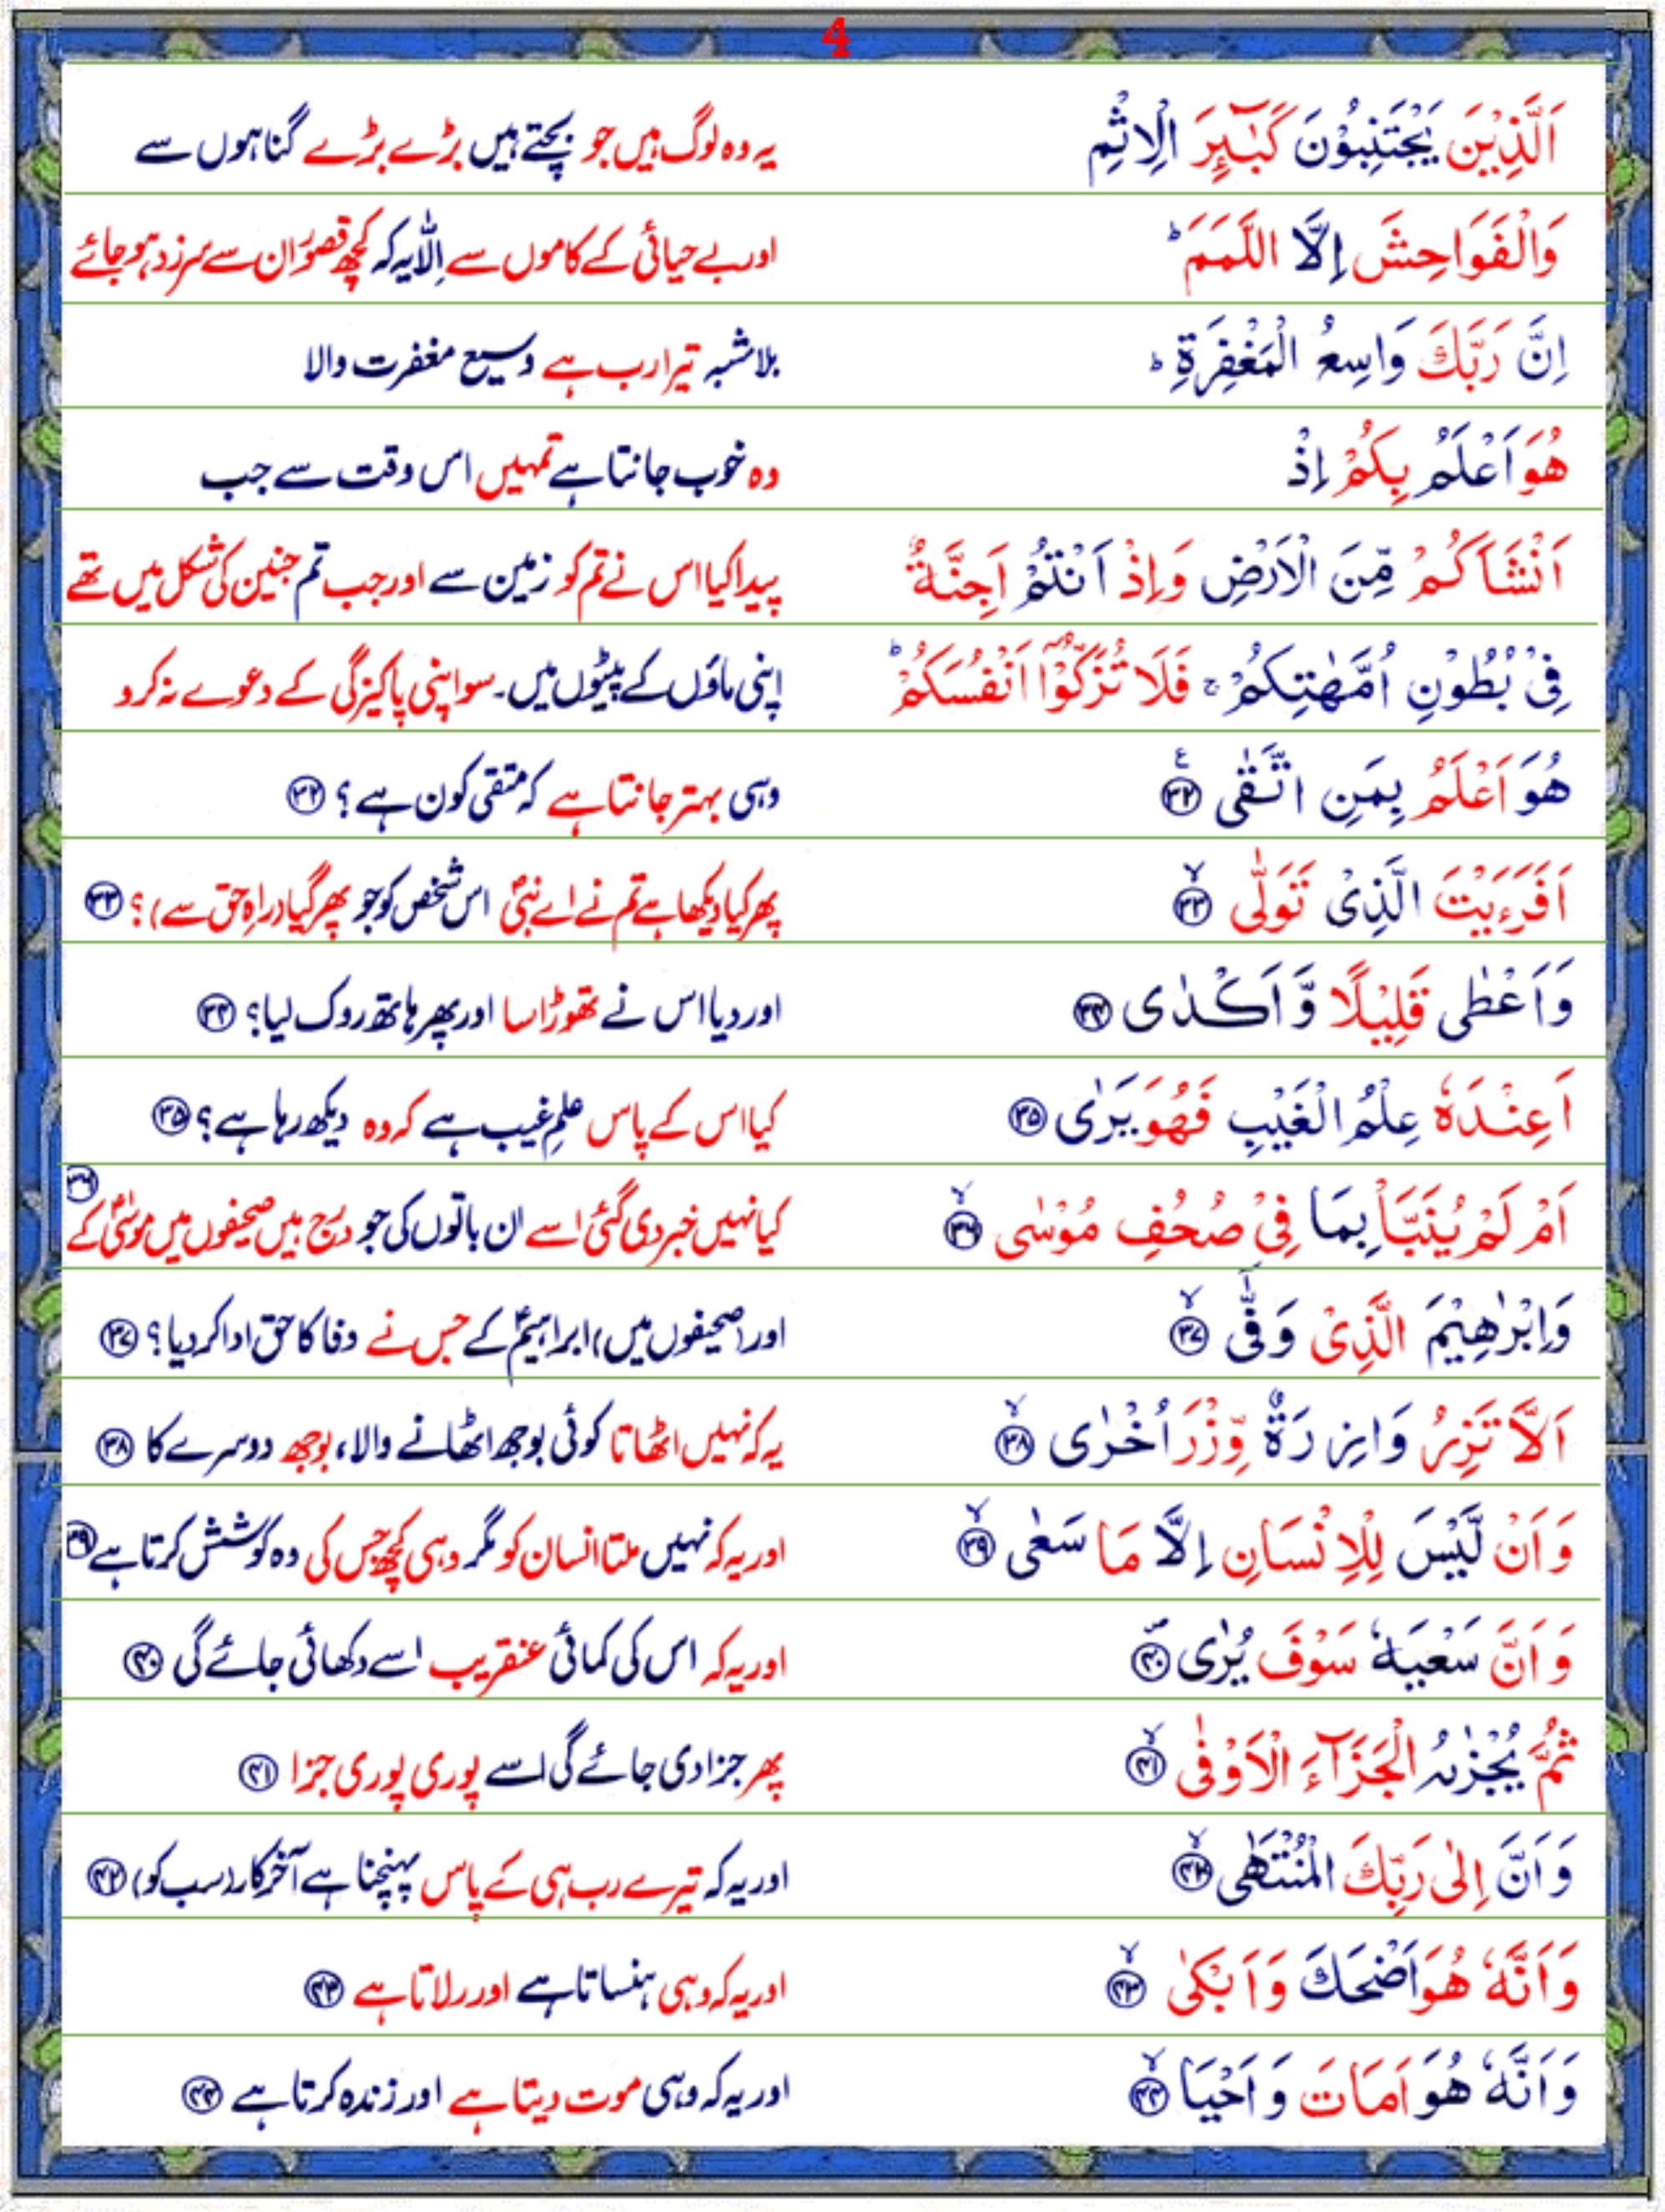 4
اَلَّذِيْنَ يَجْتَنِبُوْنَ كَبٰٓئِرَ الْاِثْمِ یہ وہ لوگ ہیں جو بچتے ہیں بڑے بڑے گناہوں سے
وَالْفَوَاحِشَ اِلَّا اللَّمَمَ ؕ اور بے حیائی کے کاموں سے اِلّا یہ کہ کچھ قصور ان سے سرزد ہو جائے
اِنَّ رَبَّكَ وَاسِعُ الْمَغْفِرَةِ ؕ بلاشبہ تیرا رب ہے وسیع مغفرت والا
هُوَ اَعْلَمُ بِكُمْ اِذْ وہ خوب جانتا ہے تمہیں اس وقت سے جب
اَنْشَاَكُمْ مِّنَ الْاَرْضِ وَاِذْ اَنْتُمْ اَجِنَّةٌ پیدا کیا اس نے تم کو زمین سے اور جب تم جنین کی شکل میں تھے
فِىْ بُطُوْنِ اُمَّهٰتِكُمْ ۚ فَلَا تُزَكُّوْۤا اَنْفُسَكُمْ ؕ اپنی ماؤں کے پیٹوں میں۔ سو اپنی پاکیزگی کے دعوے نہ کرو
هُوَ اَعْلَمُ بِمَنِ اتَّقٰى ۳۲ ع وہی بہتر جانتا ہے کہ متقی کون ہے؟ ۳۲
اَفَرَءَيْتَ الَّذِىْ تَوَلّٰى ۙ ۳۳ پھر کیا دیکھا ہے تم نے اے نبیؐ اس شخص کو جو پھر گیا (راہِ حق سے)؟ ۳۳
وَاَعْطٰى قَلِيْلًا وَّاَكْدٰى ۳۴ اور دیا اس نے تھوڑا سا اور پھر ہاتھ روک لیا؟ ۳۴
اَعِنْدَهٗ عِلْمُ الْغَيْبِ فَهُوَ يَرٰى ۳۵ کیا اس کے پاس علمِ غیب ہے کہ وہ دیکھ رہا ہے؟ ۳۵
اَمْ لَمْ يُنَبَّاْ بِمَا فِىْ صُحُفِ مُوْسٰى ۙ ۳۶ کیا نہیں خبر دی گئی اسے ان باتوں کی جو درج ہیں صحیفوں میں موسٰیؑ کے ۳۶
وَاِبْرٰهِيْمَ الَّذِىْ وَفّٰىۤ ۙ ۳۷ اور (صحیفوں میں) ابراہیمؑ کے جس نے وفا کا حق ادا کر دیا؟ ۳۷
اَلَّا تَزِرُ وَازِرَةٌ وِّزْرَ اُخْرٰى ۙ ۳۸ یہ کہ نہیں اٹھاتا کوئی بوجھ اٹھانے والا، بوجھ دوسرے کا ۳۸
وَاَنْ لَّيْسَ لِلْاِنْسَانِ اِلَّا مَا سَعٰى ۙ ۳۹ اور یہ کہ نہیں ملتا انسان کو مگر وہی کچھ جس کی وہ کوشش کرتا ہے ۳۹
وَاَنَّ سَعْيَهٗ سَوْفَ يُرٰى ۴۰ اور یہ کہ اس کی کمائی عنقریب اسے دکھائی جائے گی ۴۰
ثُمَّ يُجْزٰىهُ الْجَزَآءَ الْاَوْفٰى ۙ ۴۱ پھر جزا دی جائے گی اسے پوری پوری جزا ۴۱
وَاَنَّ اِلٰى رَبِّكَ الْمُنْتَهٰى ۙ ۴۲ اور یہ کہ تیرے رب ہی کے پاس پہنچنا ہے آخر کار (سب کو) ۴۲
وَاَنَّهٗ هُوَ اَضْحَكَ وَاَبْكٰى ۙ ۴۳ اور یہ کہ وہی ہنساتا ہے اور رلاتا ہے ۴۳
وَاَنَّهٗ هُوَ اَمَاتَ وَاَحْيَا ۙ ۴۴ اور یہ کہ وہی موت دیتا ہے اور زندہ کرتا ہے ۴۴